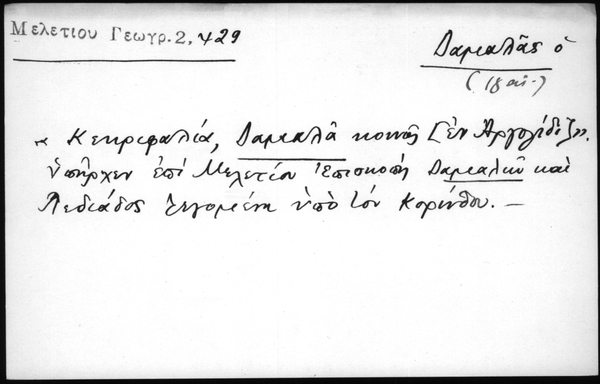 Μελετίου Γεωγρ. 2, 429
Δαμαλᾶς ὁ
(18 αἰ.)
« Κεκρυφαλία, Δαμαλᾶ κοινῶς [ἐν Ἀργολίδι]».
Ὑπῆρχεν ἐπὶ Μελετίου Ἐπισκοπὴ Δαμαλῶν καὶ
Πεδιάδος λεγομένη ὑπὸ τὸν Κορίνθου. —